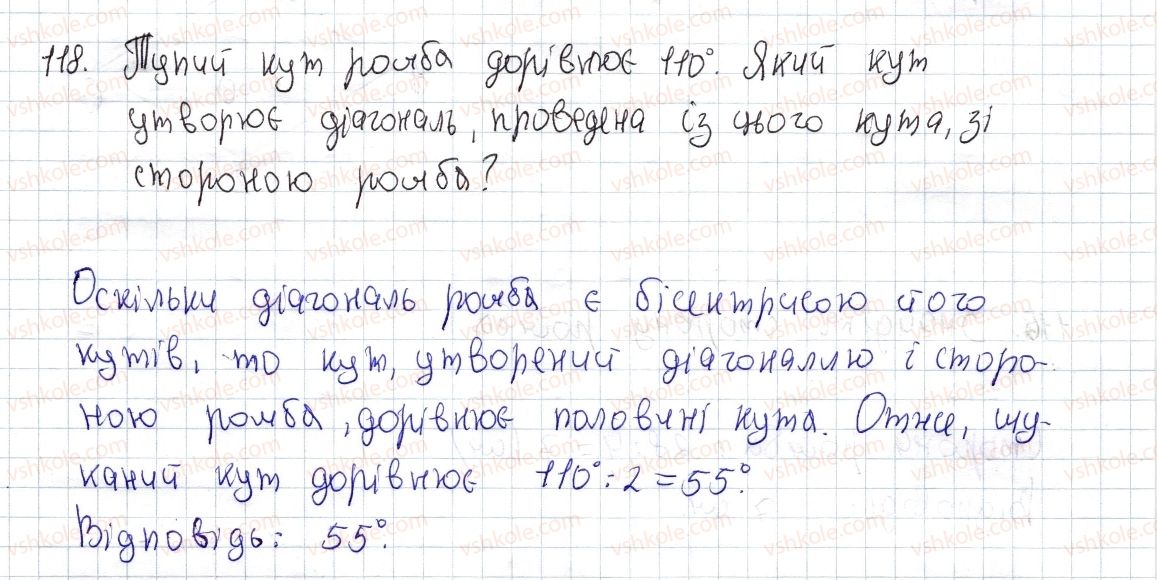 118. Тупий кут ромба дорівнює 110°. Який кут
утворює діагональ, проведена із цього кута, зі
стороною ромба?
Оскільки діагональ ромба є бісектрисою його
кутів, то кут, утворений діагоналлю і сторо-
ною ромба, дорівнює половині кута. Отже, шу-
каний кут дорівнює 110° : 2 = 55°.
Відповідь: 55°.